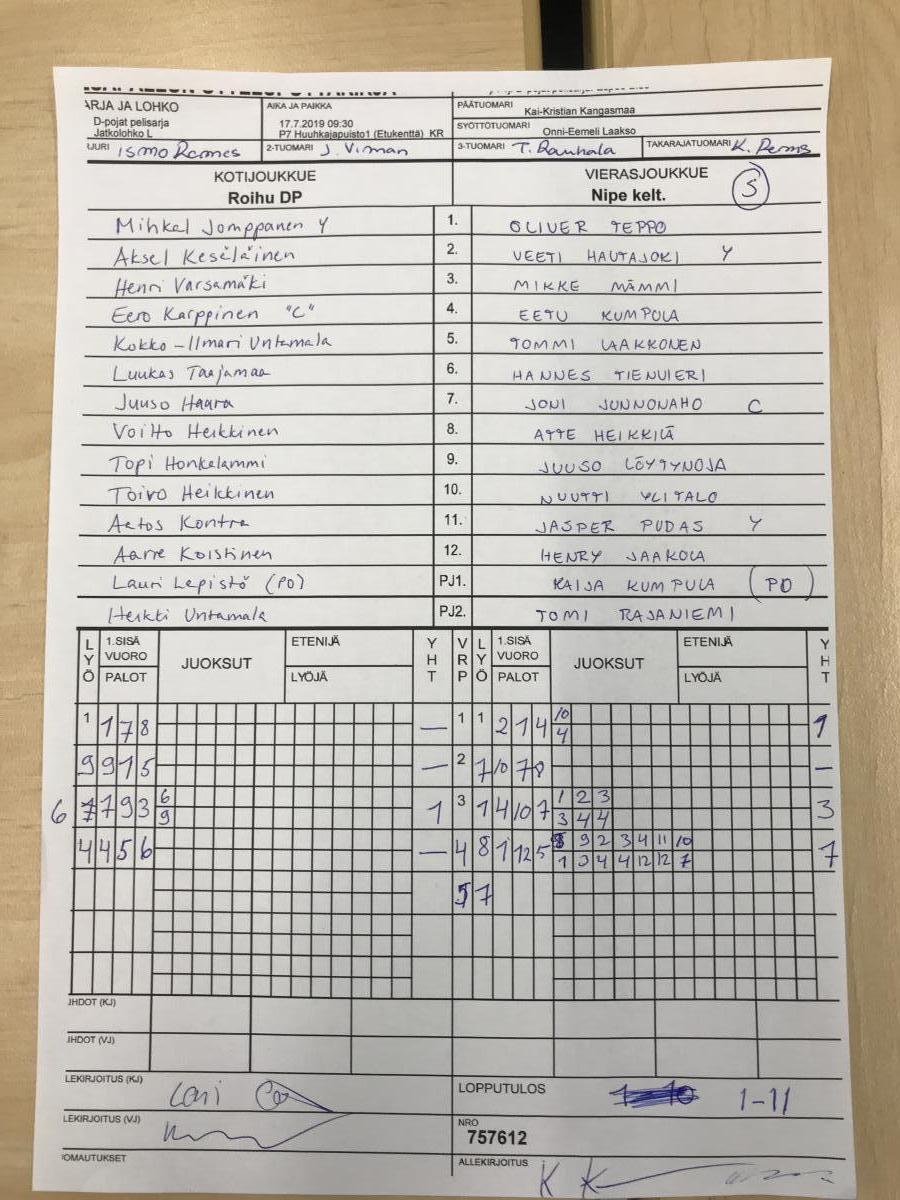 ARJA JA LOHKO
D-pojat pelisarja
Jatkolohko L
AIKA JA PAIKKA
17.7.2019 09:30
P7 Huuhkajapuisto1 (Etukenttä) KR
PÄÄTUOMARI
Kai-Kristian Kangasmaa
SYÖTTÖTUOMARI
Onni-Eemeli Laakso
Ismo Remes
2-TUOMARI J. Virman
3-TUOMARI T. Rauhala
TAKARAJATUOMARI K. Perms
KOTIJOUKKUE
Roihu DP
VIERASJOUKKUE
Nipe kelt. S
Mihkal Jomppanen Y 1. OLIVER TEPPO
Aksel Keseläinen 2. VEETI HAUTAJOKI Y
Henri Varsamäki 3. MIKKE MÄMMI
Eero Karppinen "C" 4. EETU KUMPULA
Kokko-Ilmari Untamala 5. TOMMI LAAKKONEN
Luukas Taajamaa 6. HANNES TIENVIERI
Juuso Haara 7. JONI JUNNONAHO C
Voitto Heikkinen 8. ATTE HEIKKILÄ
Topi Honkalammi 9. JUUSO LÖYTYNOJA
Toivo Heikkinen 10. NUUTTI YLITALO
Aatos Kontra 11. JASPER PUDAS Y
Aarre Koistinen 12. HENRY JAAKOLA
Lauri Lepistö (PO) PJ1. RAIJA KUMPULA (PO)
Heikki Untamala PJ2. TOMI RAJANIEMI
LYÖ 1.SISÄ VUORO PALOT JUOKSUT ETENIJÄ LYÖJÄ YHT VRP LYÖ 1.SISÄ VUORO PALOT JUOKSUT ETENIJÄ LYÖJÄ YHT
1 1 7 8 — 1 1 2 1 4 10 1
4
9 9 1 5 — 2 7 10 7 8 —
6 7 7 9 3 6 1 3 1 4 10 7 1 2 3 3
9 3 4 4
4 4 5 6 — 4 8 1 12 5 8 9 2 3 4 11 10 7
1 3 4 4 12 12 7
5 7
JHDOT (KJ)
JHDOT (VJ)
LEKIRJOITUS (KJ)
LOPPUTULOS 1-10 1-11
LEKIRJOITUS (VJ)
NRO
757612
OMAUTUKSET
ALLEKIRJOITUS